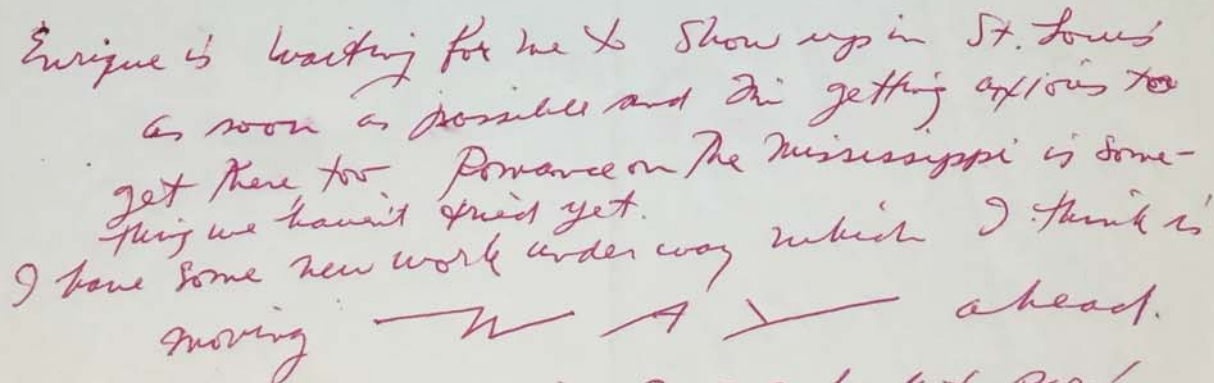 Enrique is waiting for me to show up in St. Louis
as soon as possible and I'm getting anxious to
get there, too. Romance on the Mississippi is some-
thing we haven't tried yet.
I have some new work under way which I think is
moving W A Y ahead.